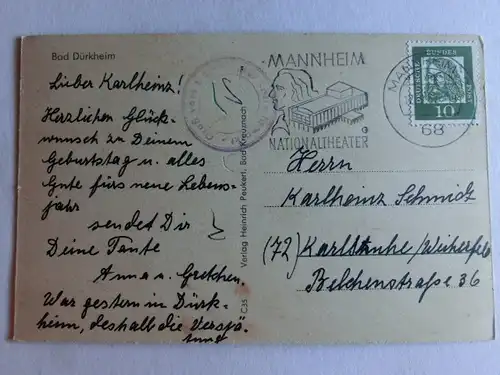 Bad Dürkheim
Lieber Karlheinz!
Herzlichen Glück-
wunsch zu Deinem
Geburtstag u. alles
Gute fürs neue Lebens-
jahr
sendet Dir
Deine Tante
Anna u. Gretchen.
War gestern in Dürk-
heim, deshalb die Verspä-
tung
C 35
Verlag Heinrich Peukert, Bad Kreuznach
MANNHEIM
NATIONALTHEATER
68
DEUTSCHE BUNDESPOST
10
Herrn
Karlheinz Schmidt
(72) Karlsruhe/Weiherfeld
Belchenstraße 36